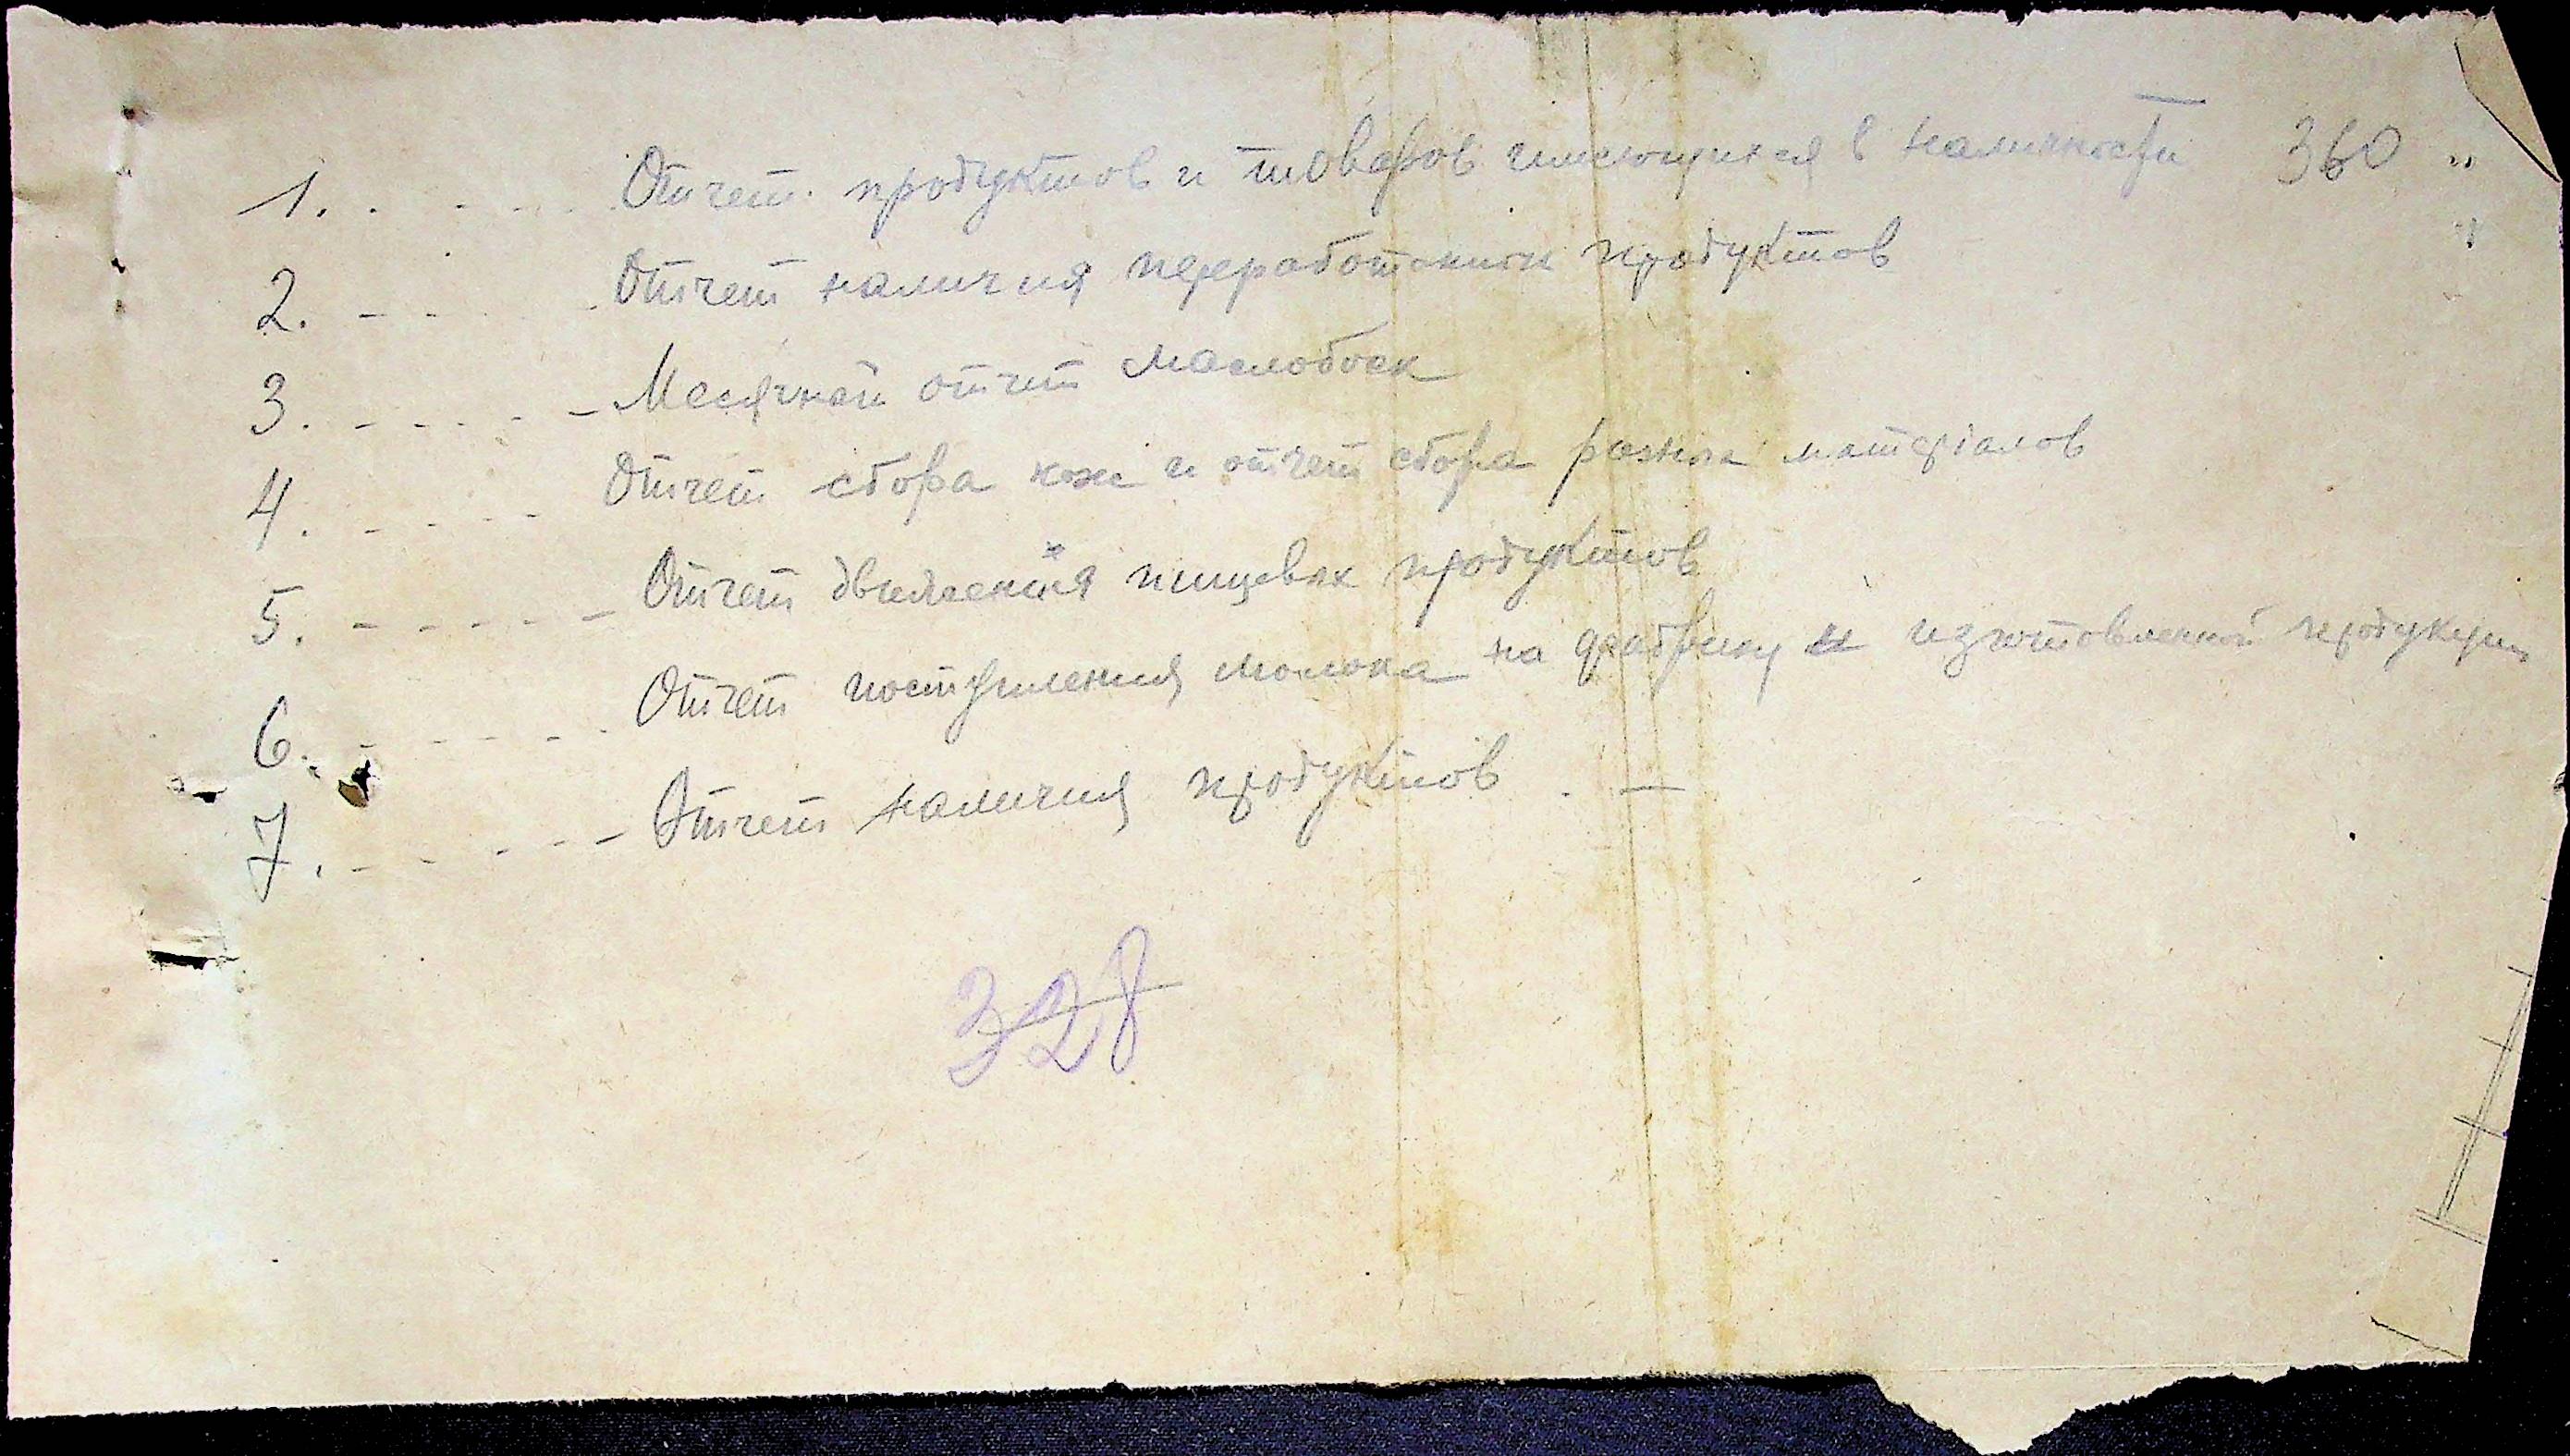 1. . - - - Отчет. продуктов и товаров имеющихся в наличности 360 "
2. - - - - Отчет наличия переработаных продуктов "
3. - - - - - Месячный отчет маслобоек
4. - - - - Отчет сбора кож и отчет сбора разных матеріалов
5. - - - - - Отчет движения пищевых продуктов
6. - - - - - Отчет поступления молока на фабрику и изготовленной продукции
7. - - - - - Отчет наличия продуктов . —
328